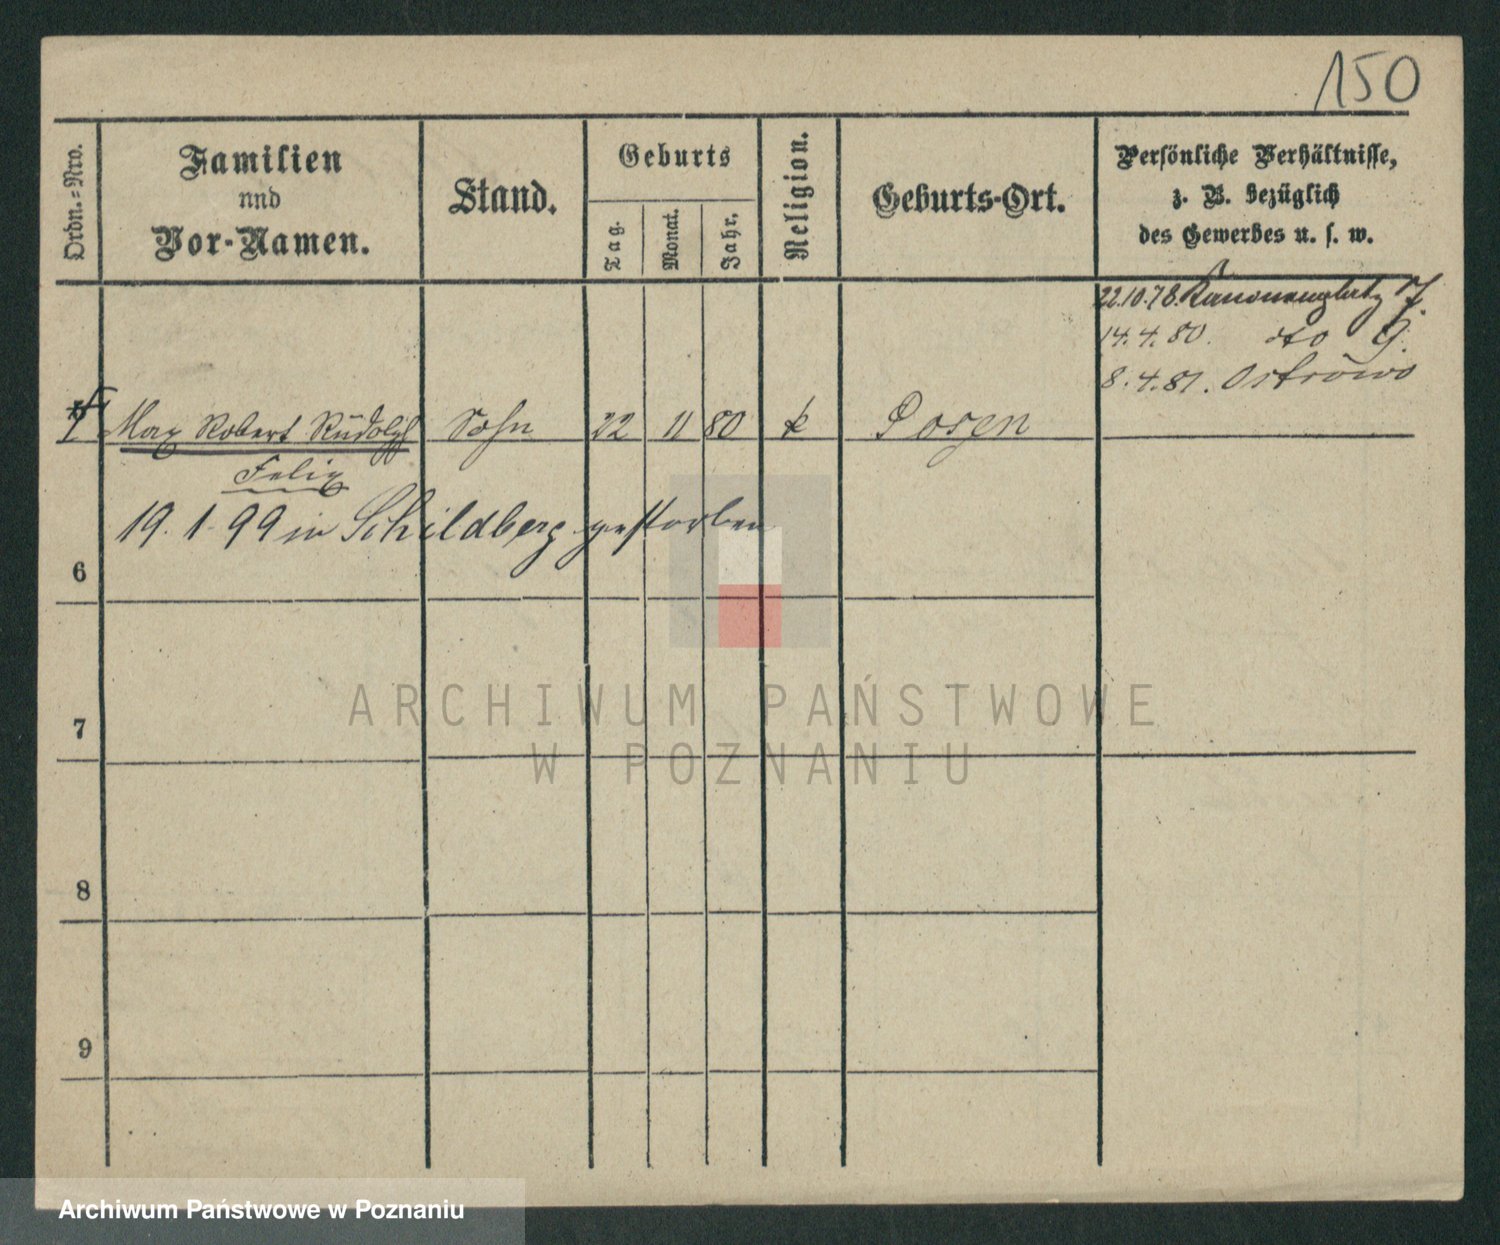 150
Ordn.=Nro.
Familien
und
Vor-Namen.
Stand.
Geburts
Tag.
Monat.
Jahr.
Religion.
Geburts-Ort.
Persönliche Verhältnisse,
z. B. bezüglich
des Gewerbes u. s. w.
22.10.78. Kanonenplatz 7.
14.4.80. dto 9.
8.4.81. Ostrowo
Max Robert Rudolph Sohn 22 11 80 k Posen
Felix
19.1.99 in Schildberg gestorben
6
7
8
9
ARCHIWUM PAŃSTWOWE
W POZNANIU
Archiwum Państwowe w Poznaniu